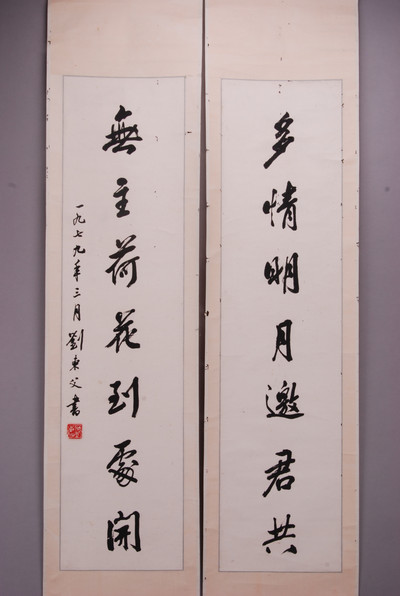 多情明月邀君共
無主荷花到處開
一九七九年三月劉東父書